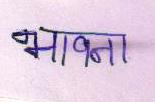 भावना